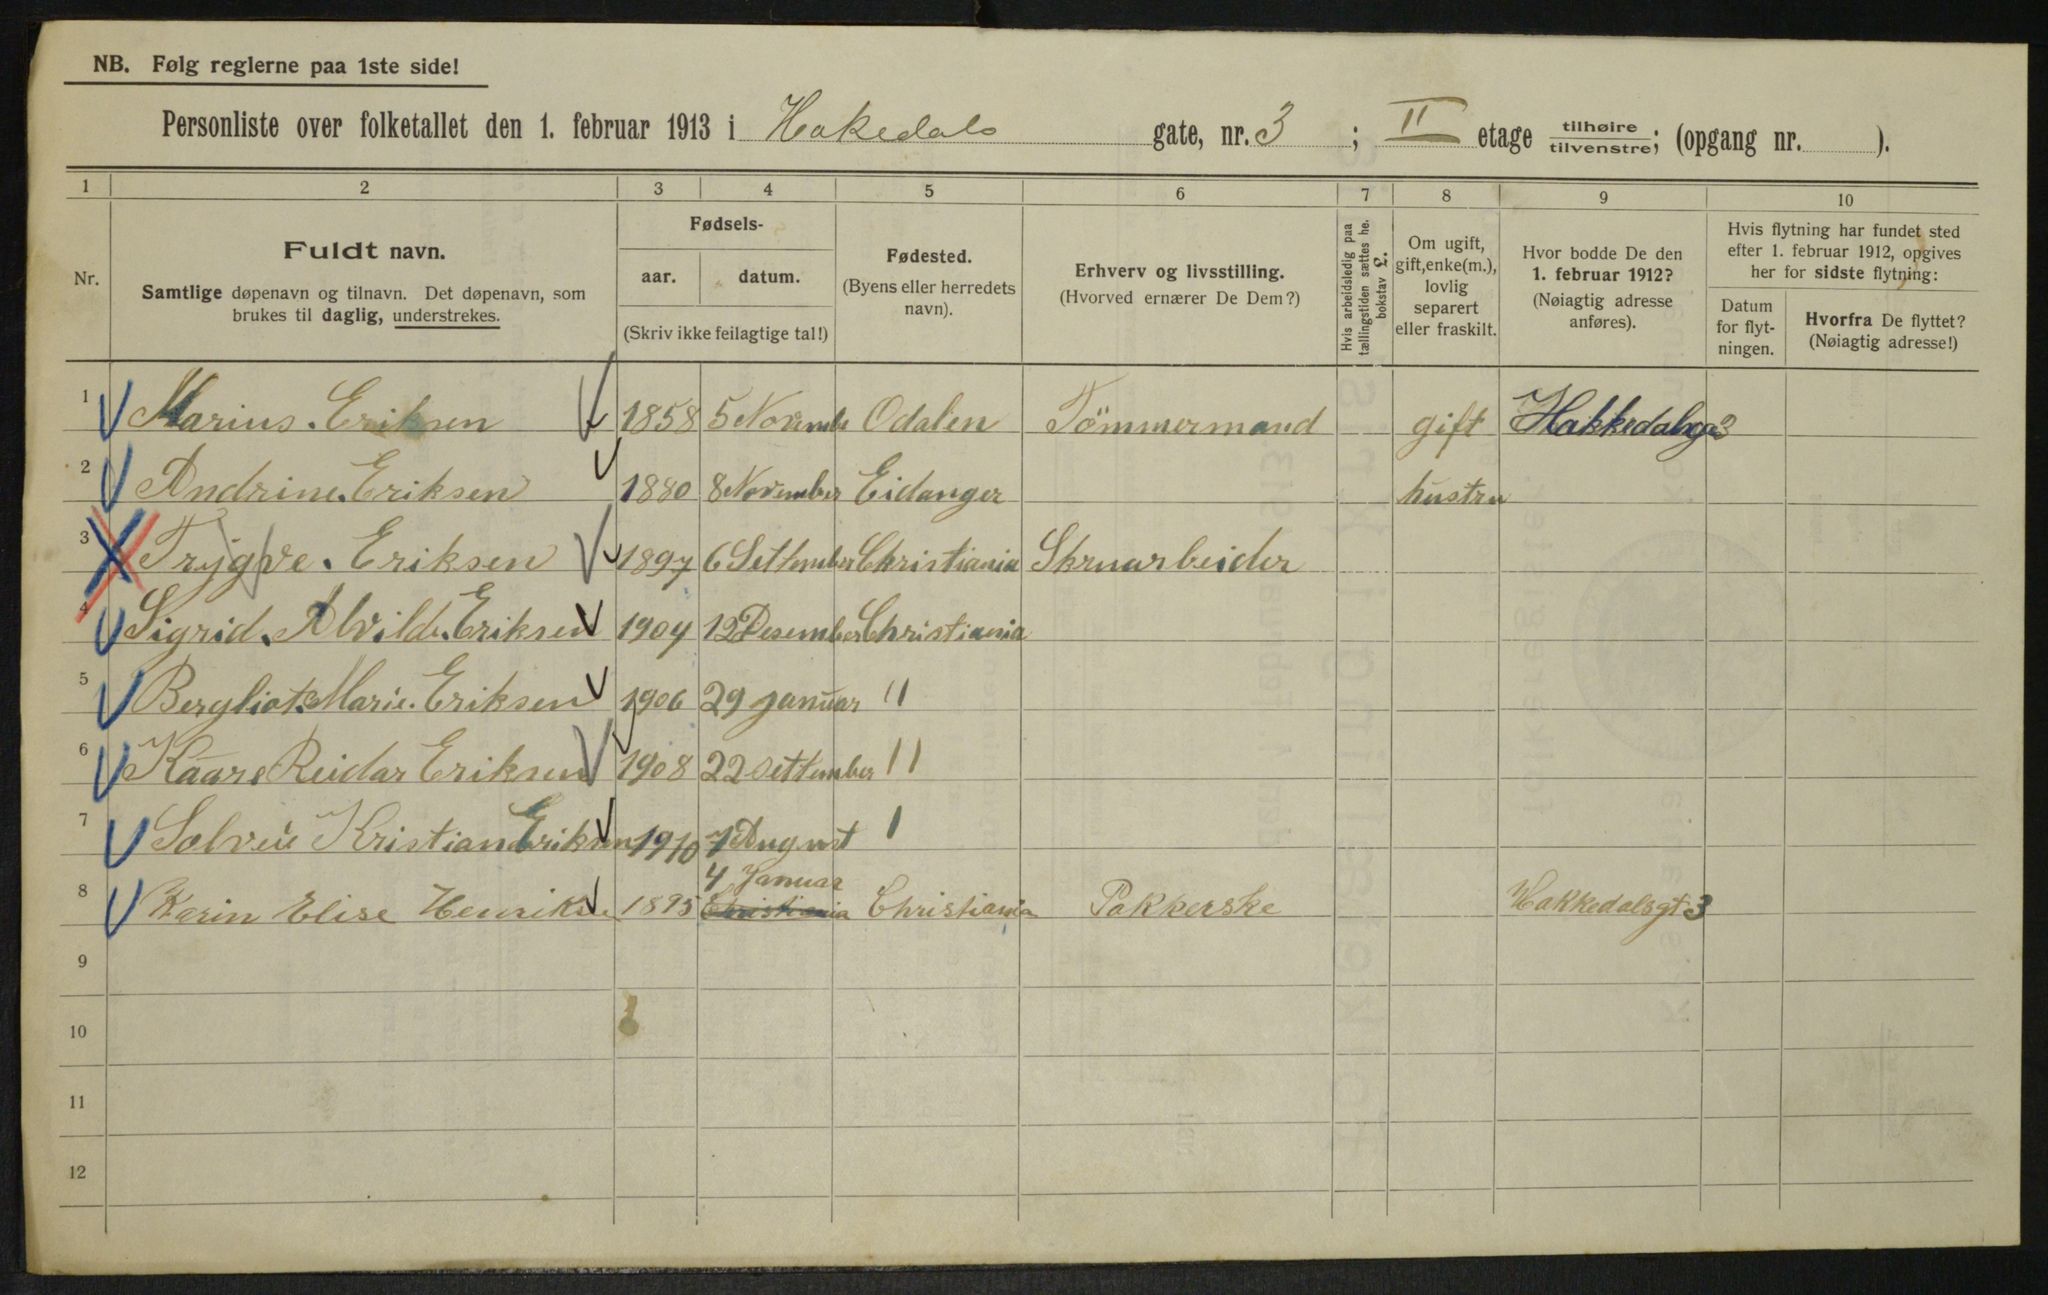 NB. Følg reglerne paa 1ste side!
Personliste over folketallet den 1. februar 1913 i Hakedals gate, nr. 3 ; II etage tilhøire tilvenstre; (opgang nr. ).
1 2 3 4 5 6 7 8 9 10
Nr.
Fuldt navn.
Samtlige døpenavn og tilnavn. Det døpenavn, som
brukes til daglig, understrekes.
Fødsels-
aar. datum.
(Skriv ikke feilagtige tal!)
Fødested.
(Byens eller herredets
navn).
Erhverv og livsstilling.
(Hvorved ernærer De Dem?)
Hvis arbeidsledig paa
tællingstiden sættes he.
bokstav L.
Om ugift,
gift, enke(m.),
lovlig
separert
eller fraskilt.
Hvor bodde De den
1. februar 1912?
(Nøiagtig adresse
anføres).
Hvis flytning har fundet sted
efter 1. februar 1912, opgives
her for sidste flytning:
Datum
for flyt-
ningen.
Hvorfra De flyttet?
(Nøiagtig adresse!)
1 Marius. Eriksen 1858 5 Novembe Odalen Tömmermand gift Hakkedalsga 3
2 Andrine. Eriksen 1880 8 November Eidanger hustru
3 Trygve. Eriksen 1897 6 Settember Christiania Skruarbeider
4 Sigrid. Alvilde. Eriksen 1904 12 Desember Christiania
5 Bergliot. Marie. Eriksen 1906 29 januar "
6 Kaare Reidar Eriksen 1908 22 settember "
7 Solvei Kristian Eriksen 1910 7 August "
4 Januar
8 Karin Elise Henriksen 1895 Christiania Christiania Pakkerske Hakkedalsgt 3
9
10
11
12